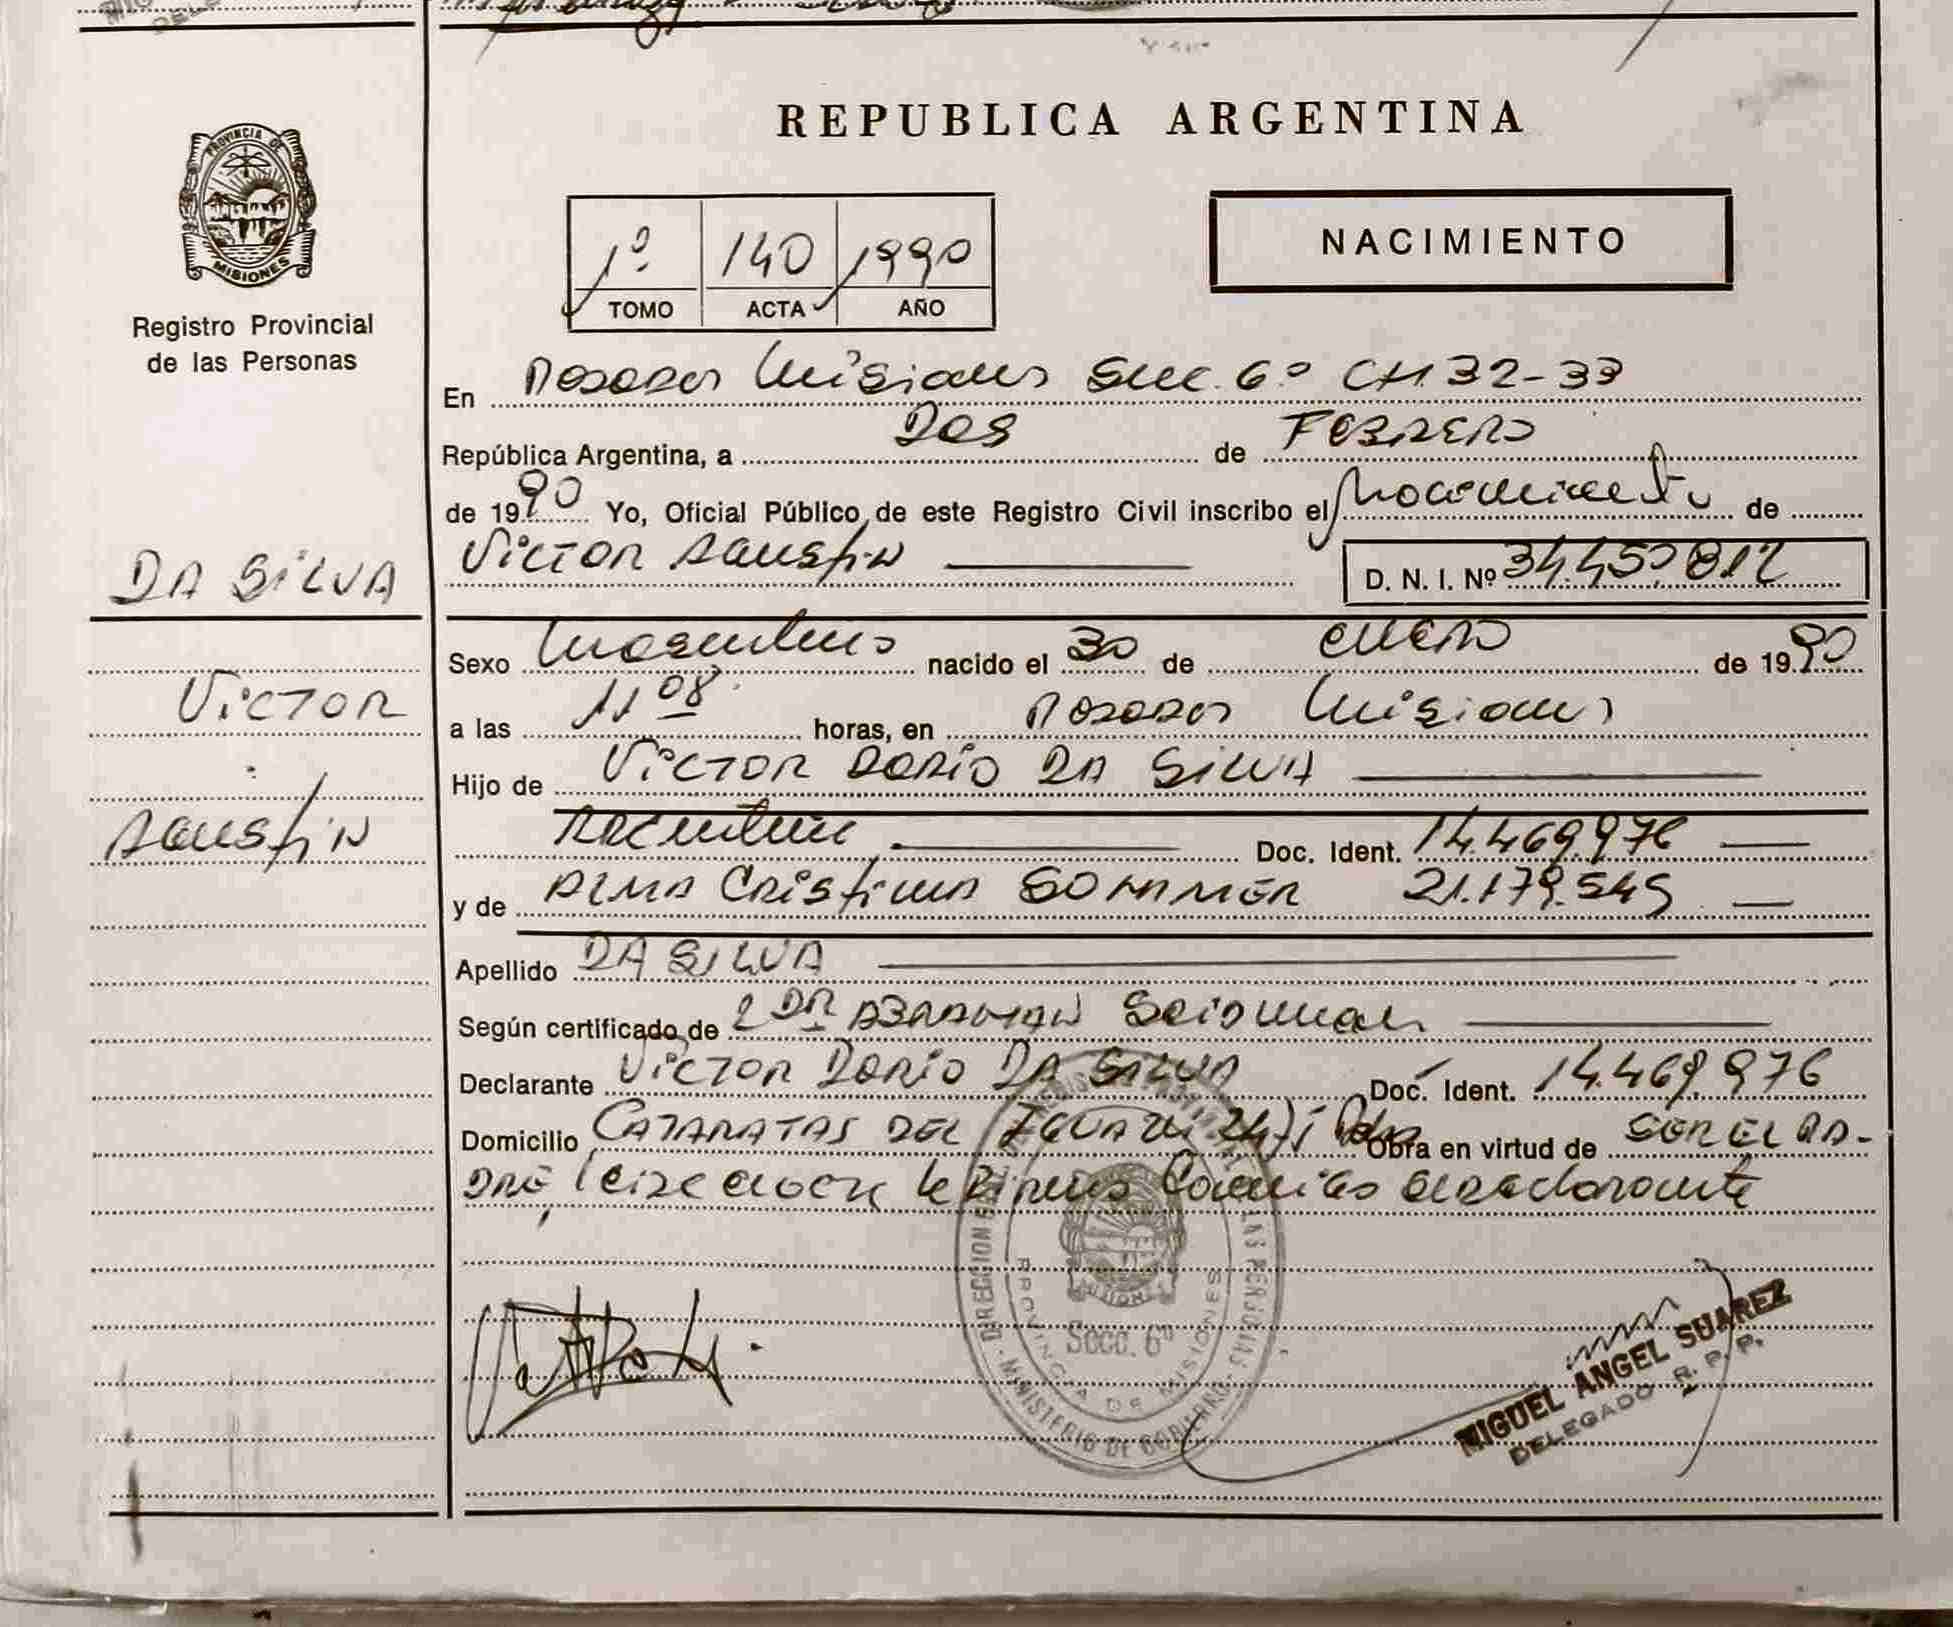 REPUBLICA ARGENTINA
PROVINCIA DE
MISIONES
Registro Provincial
de las Personas
NACIMIENTO
1º 140 1990
TOMO ACTA AÑO
En Posadas Misiones Secc. 6º CH 32-33
República Argentina, a DOS de FEBRERO
de 1990 Yo, Oficial Público de este Registro Civil inscribo el nacimiento de
VICTOR AGUSTIN D. N. I. Nº 34.450.812
DA SILVA
VICTOR
AGUSTIN
Sexo Masculino nacido el 30 de enero de 1990
a las 11 08 horas, en Posadas Misiones
Hijo de VICTOR DARIO DA SILVA
Doc. Ident. 14.469.976
y de ALMA CRISTINA SOMMER 21.179.545
Apellido DA SILVA
Según certificado de DR ABRAHAM
Declarante VICTOR DARIO DA SILVA Doc. Ident. 14.469.976
Domicilio CATARATAS DEL IGUAZU Obra en virtud de SER EL PA-
DRE
DIRECCION
MINISTERIO DE GOBIERNO
PROVINCIA DE MISIONES
Secc. 6º
MIGUEL ANGEL SUAREZ
DELEGADO R. P. P.